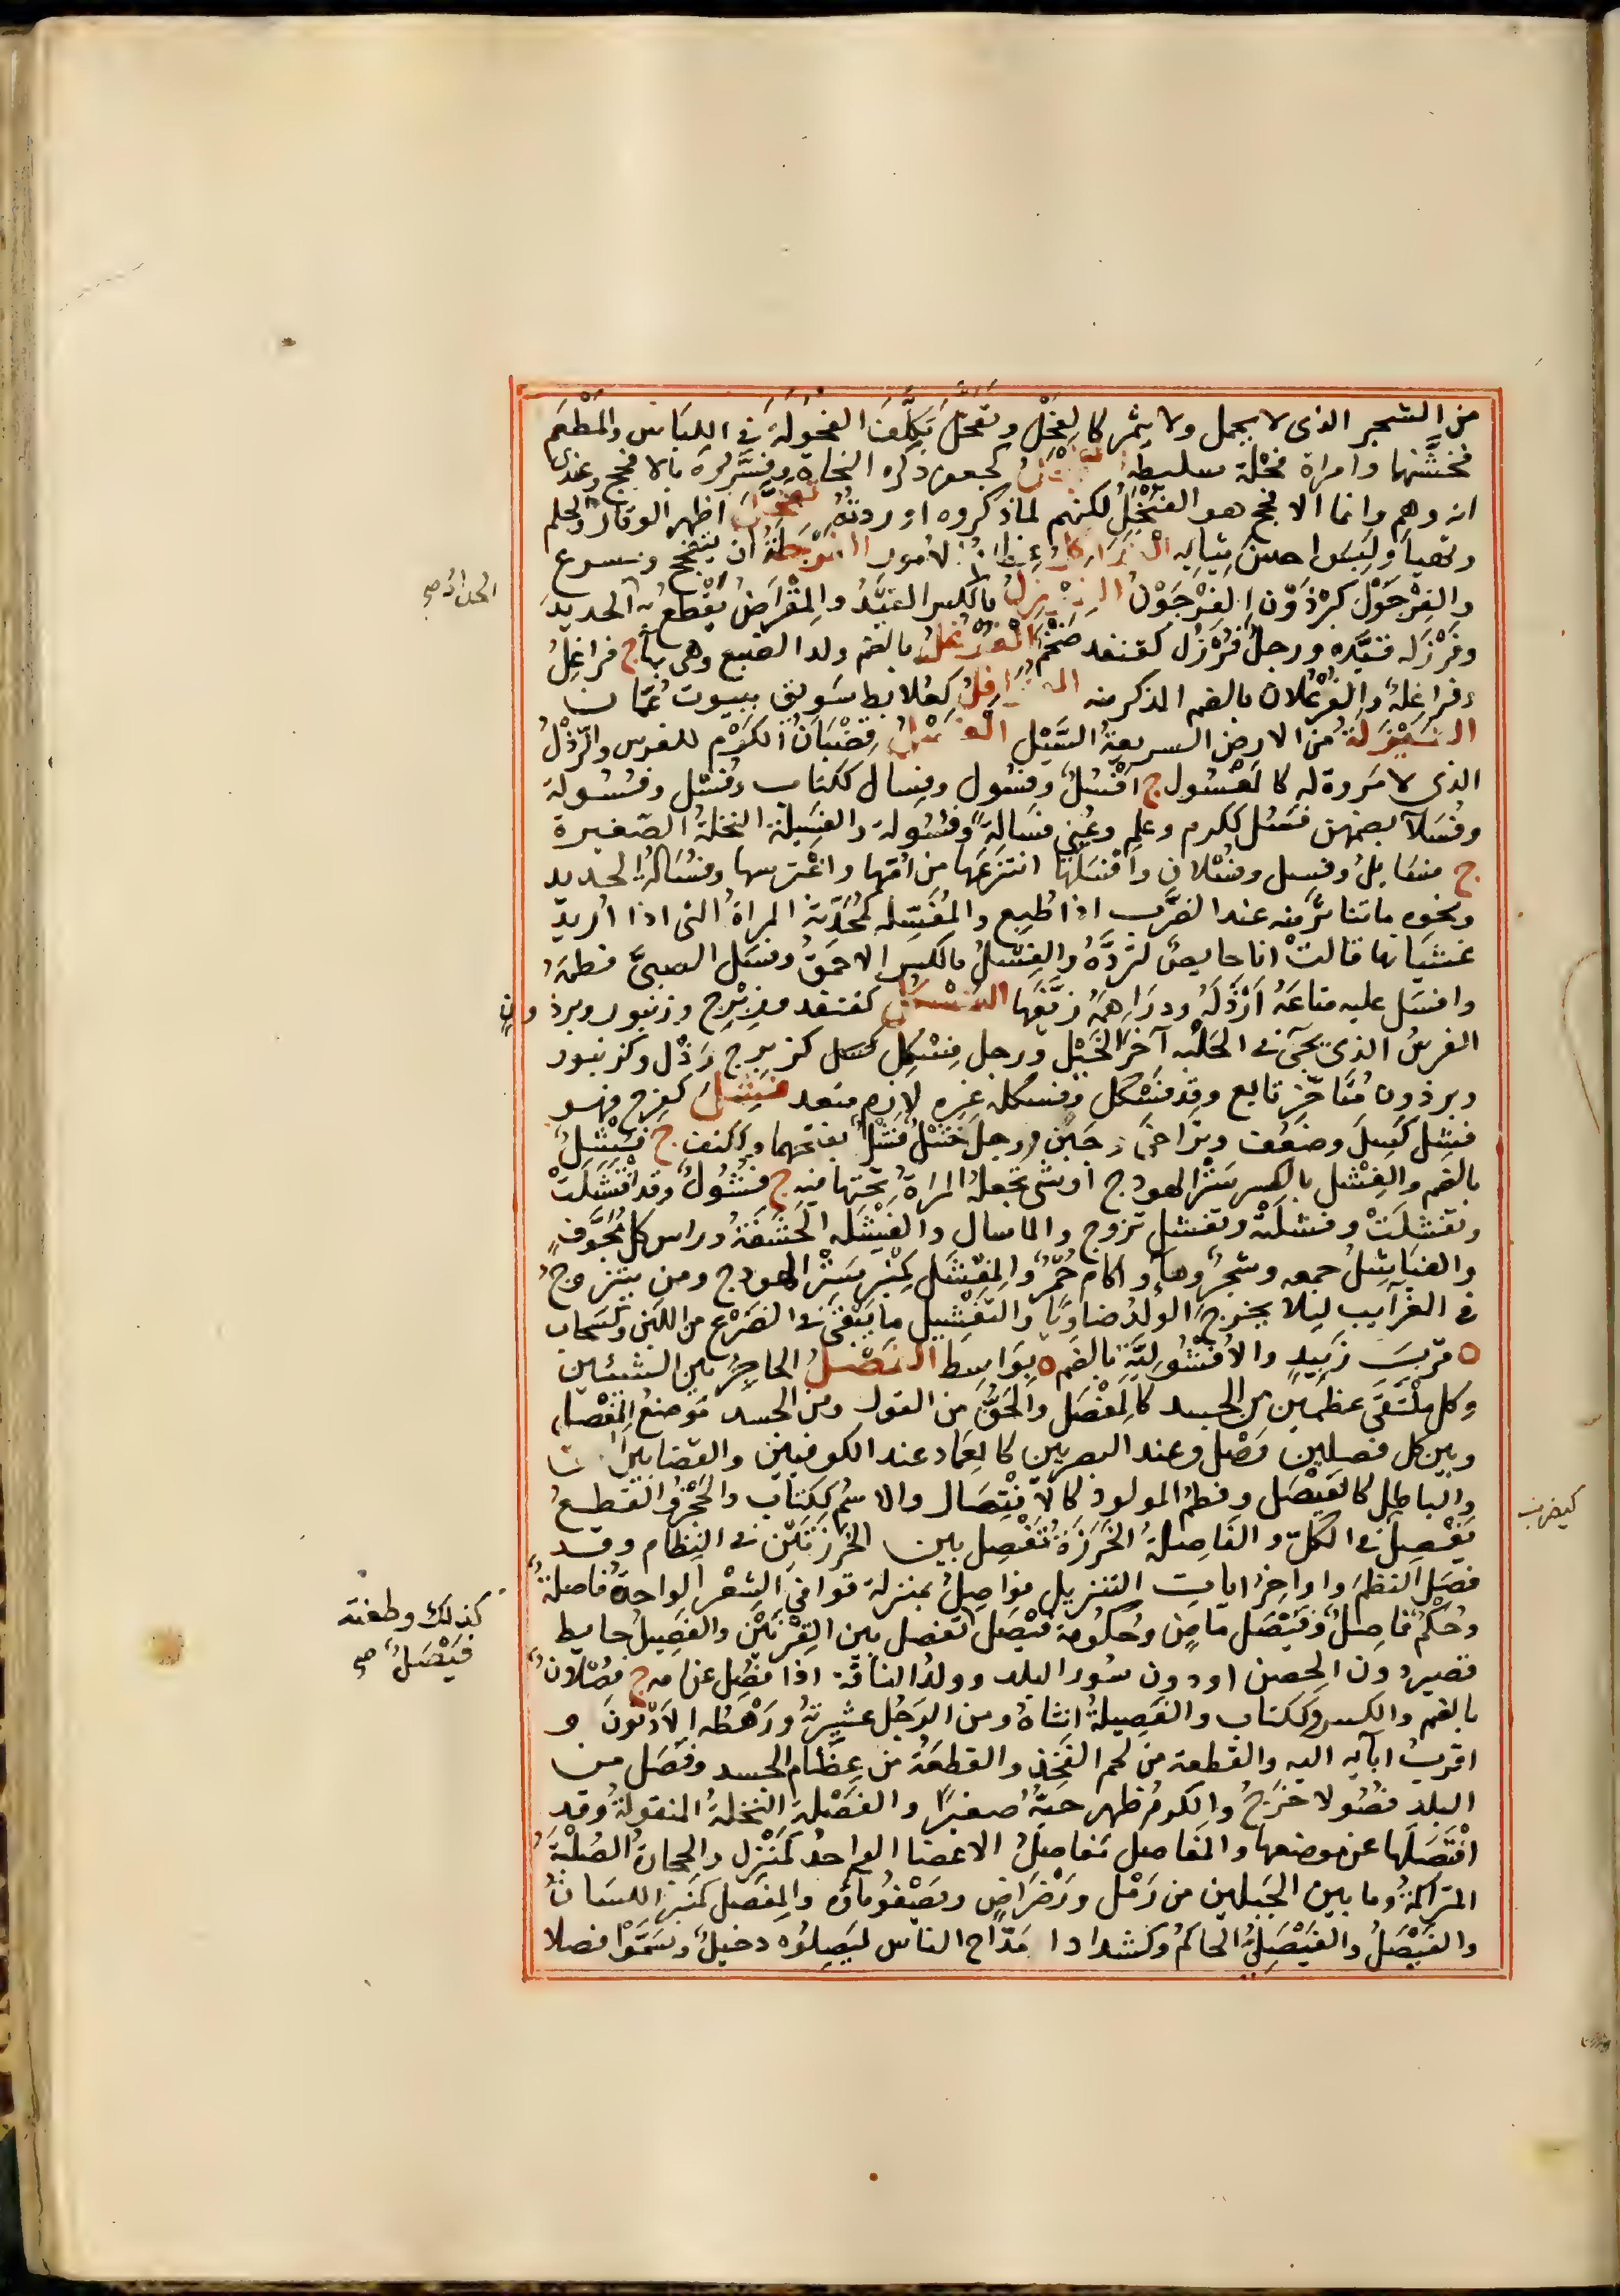 من الشجر الذى لا يحمل ولا يثمر كالفحل وتفحل تكلف الفحولة فى اللباس والمطعم
فخشنهما وامراة فحلة سليطة كجعفر ذكره النحاة وفسره بالافحج وعندى
انه وهم وانما الافحج هو الفنجل لكنهم لما ذكروه اوردته اظهر الوقار والحلم
وتهيا ولبس احسن ثيابه الامور ان يتفحج ويسرع
والفرجول كبرذون الفرجون بالكسر القيد والمقراض يقطع به الحديد
وفرزله قيده ورجل فرزل كقنفذ ضخم الفرعل بالضم ولد الضبع وهى بهاء ج فراعل
وفراعلة والفرعلان بالضم الذكر منه كعلابط سويق ينبوت عمان
من الارض السريعة السيل قضبان الكرم للغرس والرذل
الذى لا مروة له كالمفسول ج افسل وفسول وفسال ككتاب وفسل وفسولة
وفسلاء بضمهن فسل ككرم وعلم وعنى فسالة وفسولة والفسيلة النخلة الصغيرة
ج فسايل وفسيل وفسلان وافسلها انتزعها من امها واغترسها وفسالة الحديد
ونحوه ما تناثر منه عند الضرب اذا طبع والمفسلة كمحدثة المراة التى اذا اريد
غشيانها قالت انا حايض لترده والفسل بالكسر الاحمق وفسل الصبى فطمه
وافسل عليه متاعه ارذله ودراهمه زيفها الفسكل كقنفذ وزبرج وزنبور وبرذون
الفرس الذى يجىء فى الحلبة آخر الخيل ورجل فسكل كزبرج رذل وكزنبور
وبرذون متاخر تابع وقد فسكل وفسكله غيره لازم متعد فشل كفرح فهو
فشل كسل وضعف وتراخى وجبن ورجل خشل فشل بفتحهما وككتف ج فشل
بالضم والفشل بالكسر ستر الهودج او شى تجعله المراة تحتها فيه ج فشول وقد افتشلت
وتفشلت وفشلته وتفشل تزوج والما سال والفيشلة الحشفة وراس كل محوف
والفياشل جمعه وشجر وماء واكام حمر والمفشل كمنبر ستر الهودج ومن يتزوج
فى الغرايب ليلا يخرج الولد ضاويا والتفشيل ما يبقى فى الضرع من اللبن وكسحاب
ة قرب زبيد والافشولية بالضم ة بواسط الفصل الحاجز بين الشيئين
وكل ملتقى عظمين من الجسد كالمفصل والحق من القول ومن الجسد موضع المفصل
وبين كل فصلين وصل وعند البصريين كالعماد عند الكوفيين والقضا بين
والباطل كالفيصل وفطم المولود كالافتصال والاسم ككتاب والحجز والقطع
يفصل فى الكل والفاصلة الخرزة تفصل بين الخرزتين فى النظام وقد
فصل النظم واواخر ايات التنزيل فواصل بمنزلة قوافى الشعر الواحدة فاصلة
وحكم فاصل وفيصل ماض وحكومة فيصل تفصل بين القرنين والفصيل حايط
قصير دون الحصن او دون سور البلد وولد الناقة اذا فصل عن امه ج فصلان
بالضم والكسر وككتاب والفصيلة انثاه ومن الرجل عشيرته ورهطه الادنون و
اقرب ابائه اليه والقطعة من لحم الفخذ والقطعة من عظام الجسد وفصل من
البلد فصولا خرج والكرم ظهر حبه صغيرا والفصلة النخلة المنقولة وقد
افتصلها عن موضعها والمفاصل مفاصل الاعضا الواحد كمنزل والحجارة الصلبة
المتراكمة وما بين الجبلين من رمل ورضراض ويصفو ماؤه والمفصل كمنبر اللسان
والفيصل والفيصلى الحاكم وكشداد مداح الناس ليصلوه دخيل وسموا فصلا
كيضرب
كذلك وطعنة
فيصل صح